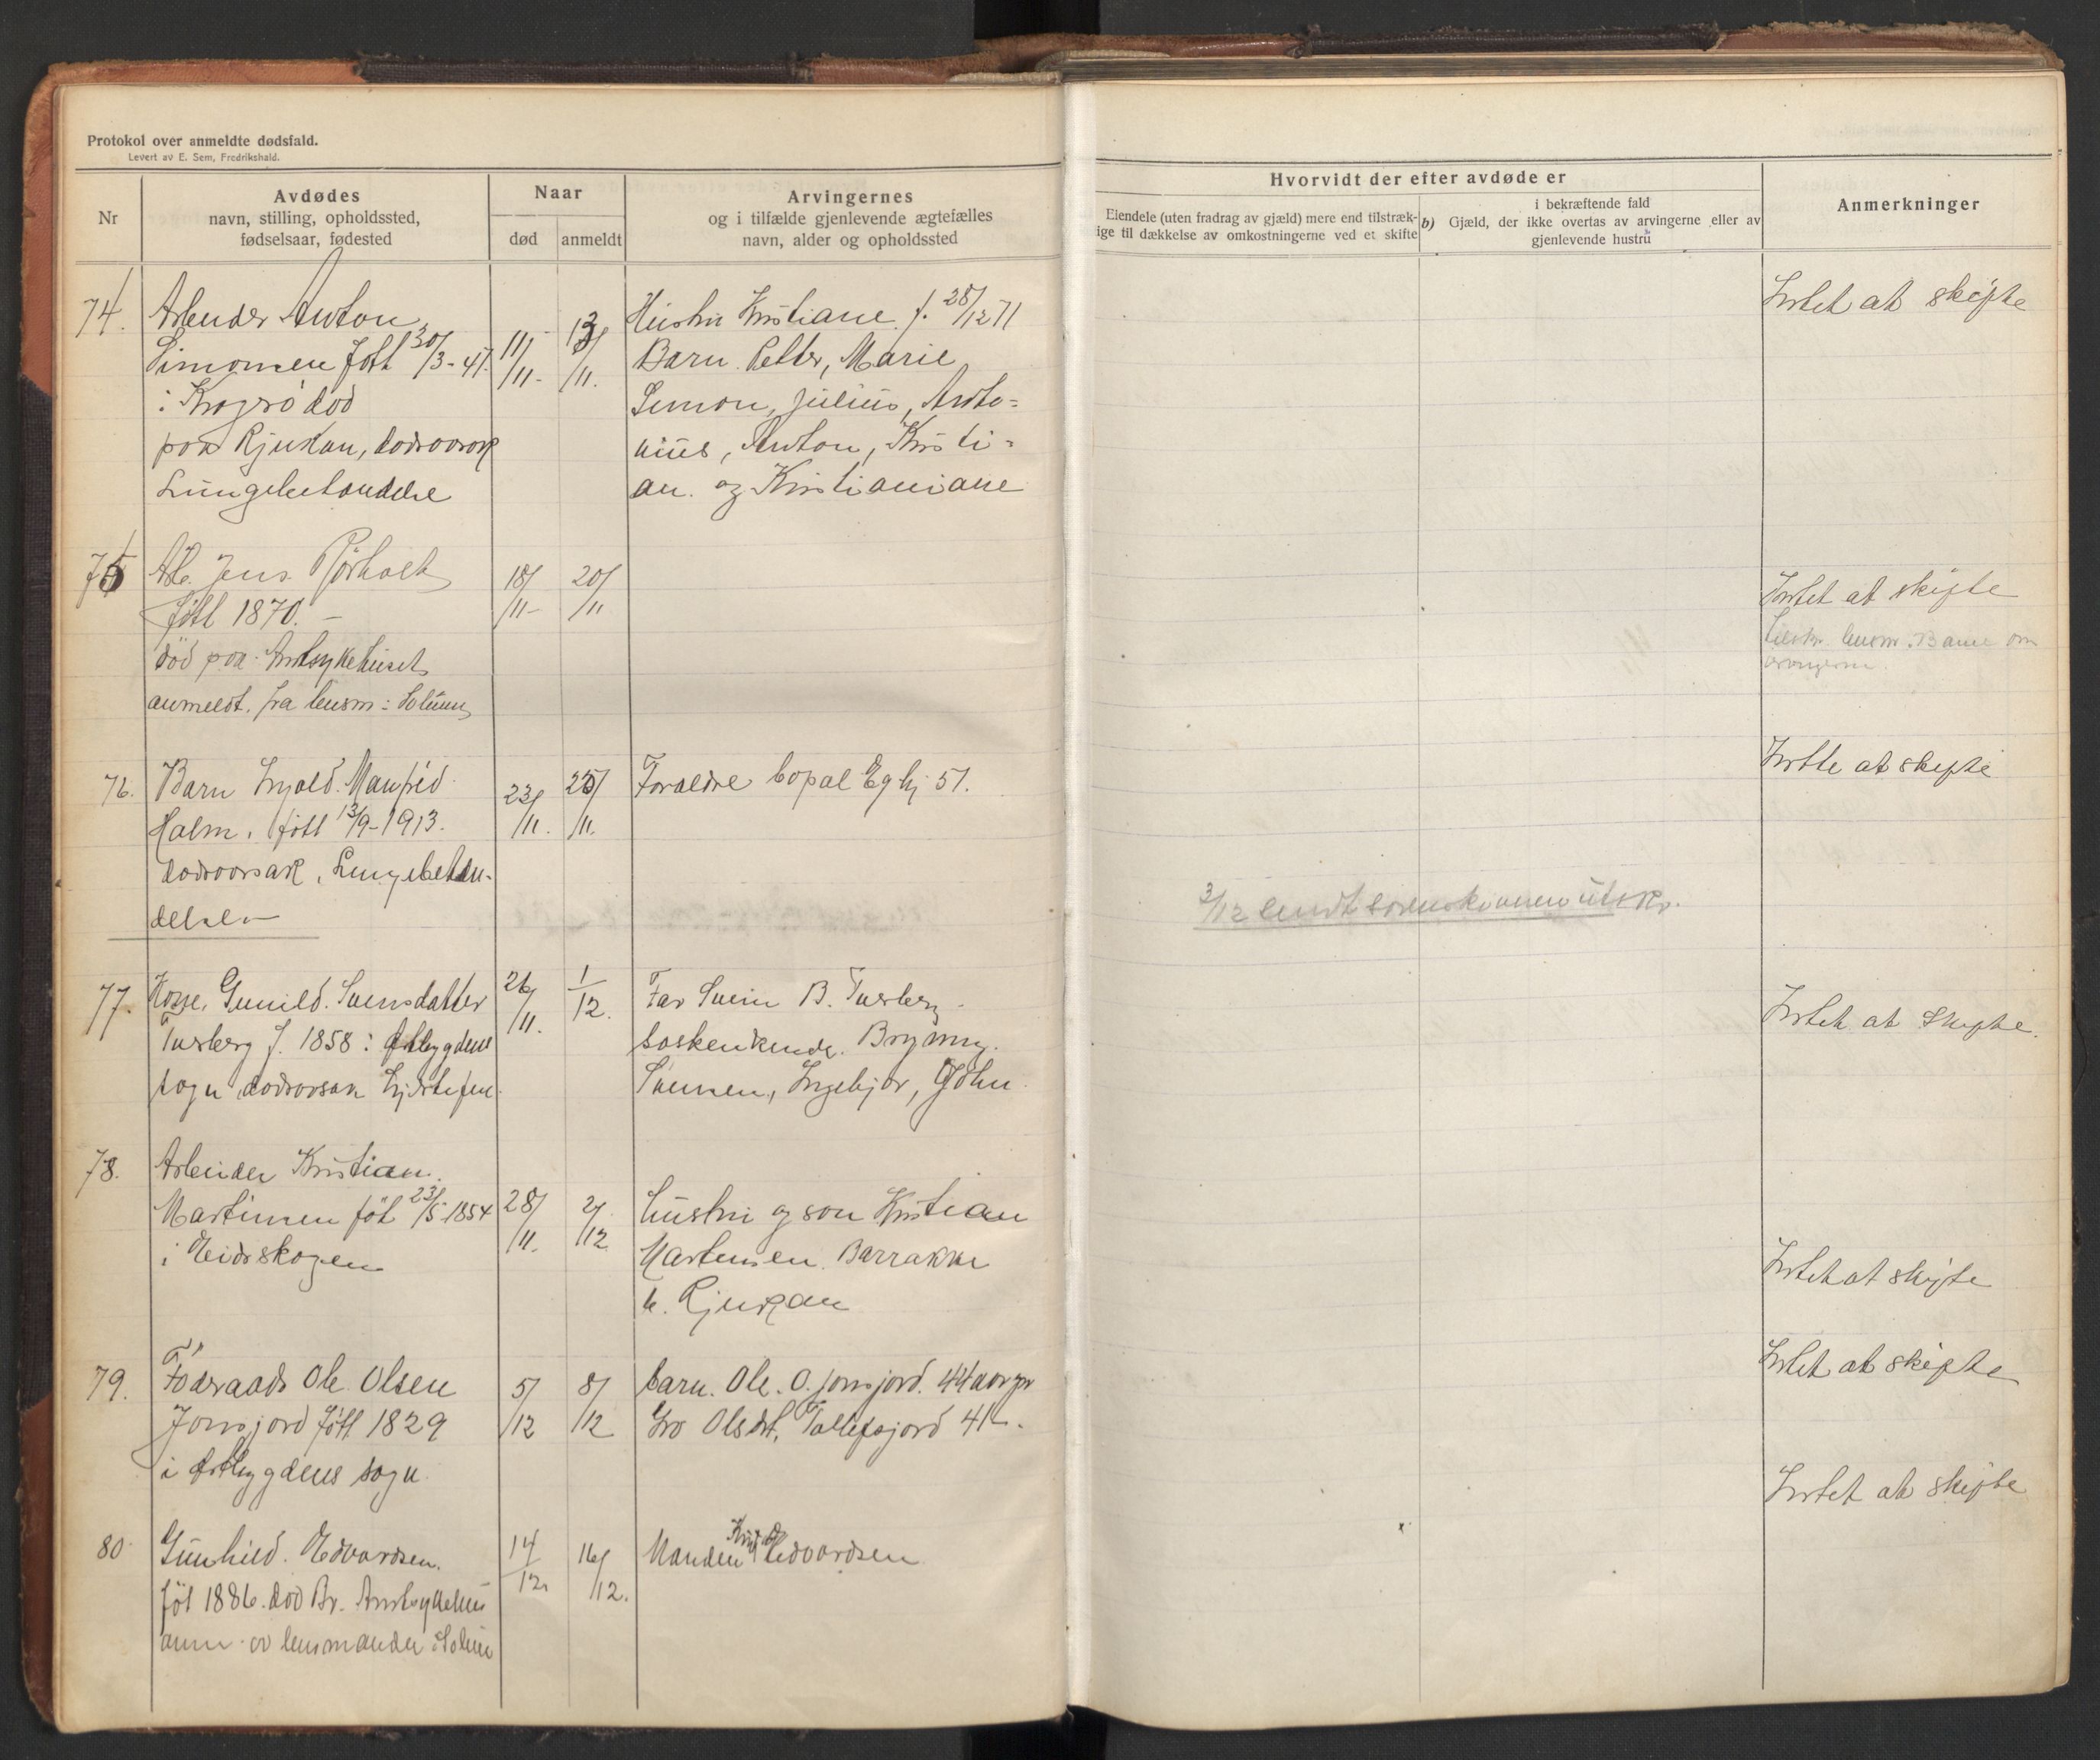 Protokol over anmeldte dødsfald.
Levert av E. Sem, Fredrikshald.
Nr
Avdødes
navn, stilling, opholdssted,
fødselsaar, fødested
Naar
død
anmeldt
Arvingernes
og i tilfælde gjenlevende ægtefælles
navn, alder og opholdssted
Hvorvidt der efter avdøde er
Eiendele (uten fradrag av gjæld) mere end tilstræk-
ige til dækkelse av omkostningerne ved et skifte
b)
i bekræftende fald
Gjæld, der ikke overtas av arvingerne eller av
gjenlevende hustru
Anmerkninger
74.
Arbeider Anton
Simonsen født 30/3-
i Kragerø død
paa Rjukan, dødsaarsak
Lungebetændelse
11/11-
13/11.
Hustru Kristiane f. 28/12 71
Barn Petter, Marie
Simon, Julius, Anto-
nius, Anton, Kristi-
an. og Kristianiane
Intet at skifte
75
Arb. Jens Rørholt
født 1870. -
død paa Amtsykehuset
anmeldt fra lensm i Solum
18/11-
20/11
Intet at skifte
lensm. om
arvingerne.
76.
Barn Manfred
Halm, født 13/9-1913.
dødsaarsak, Lungebetæn-
delse
23/11.
25/11.
Foræld bopæl 51.
Intet at skifte
3/12 sendt sorenskriveren utskr.
77.
Kone Gunild Svensdatter
Turberg f. 1858 i Østbygdens
sogn dødsaarsak
26/11.
1/12.
Far Svein B. Turberg
Søskenkende. Brynj.
Svensen, Ingebjør, John
Intet at skifte.
78.
Arbeider Kristian
Martinsen født 23/5-1854
i Eidskogen
28/11.
2/12
hustru og søn Kristian
Martensen Barrakke
6. Rjukan
Intet at skifte
79.
Føderaads Ole Olsen
Jonsjord født 1829
i Østbygdens sogn
5/12
8/12
barn. Ole. O. Jonsjord. 44 aar gr
Gro Olsdt. Tollefsjord 41 -.
Intet at skifte
80
Gunhild. Edvardsen.
føt 1886. død Br. Amtsykehus
anm. av lensmanden i Solum
14/12
16/12.
Manden Knut Edvardsen
Intet at skifte